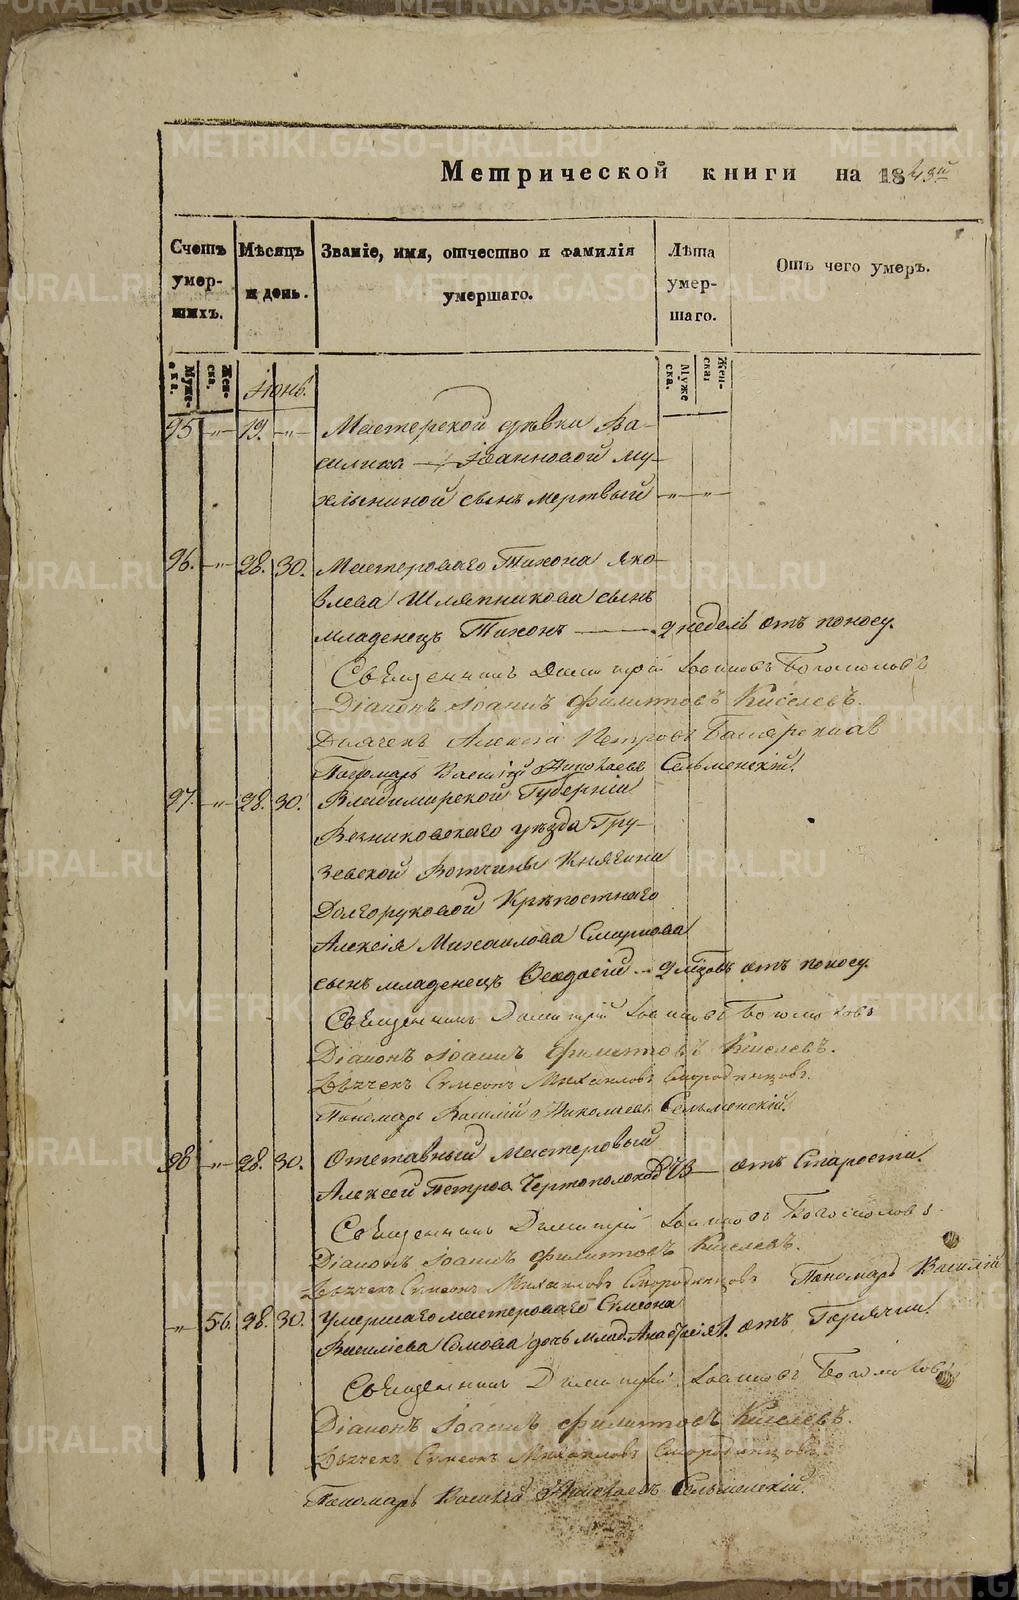 Метрической книги на 1843й
Счетъ умер- шихъ.
Мѣсяцъ и день.
Званіе, имя, отчество и фамилія умершаго.
Лѣта умер- шаго.
Отъ чего умеръ.
Муже- ска.
Жен- ска.
Іюнь.
Муже ска.
Жен- ска
95 — 19. — Мастерской дѣвки Ва-
силиса — Іоанновой Му-
хлыниной сынъ мертвый — —
96. — 28. 30. Мастероваго Тихона Яко-
влева Шляпникова сынъ
младенецъ Тихонъ — 2 недель отъ поносу.
Священникъ Димитрій Іоанновъ Богомоловъ
Діаконъ Іоаннъ Филиповъ Киселевъ.
Дьячекъ Алексій Петровъ
Пономарь Василій Николаевъ Сельменскій.
97. — 28. 30. Владимирской Губерніи
Везниковскаго уѣзда Гру-
зевской Вотчины Княгини
Долгоруковой Крѣпостнаго
Алексія Михаилова Смирнова
сынъ младенецъ Ѳеодосій — 2 отъ поносу.
Священникъ Димитрій Іоанновъ Богомоловъ
Діаконъ Іоаннъ Филиповъ Киселевъ.
Дьячекъ Симеонъ Михаиловъ Смородинцовъ.
Пономарь Василій Николаевъ Сельменскій.
98 — 28. 30. Отставный мастеровый
Алексей Петров Чертополоховъ 73 — отъ Старости.
Священникъ Димитрій Іоанновъ Богомоловъ
Діаконъ Іоаннъ Филиповъ Киселевъ.
Дьячекъ Симеонъ Михаиловъ Смородинцовъ Пономарь Василій
— 56. 28. 30. Умершаго мастероваго Симеона
Василіева Сомова дочь млад. Анафасія 1. отъ Горячки.
Священникъ Димитрій Іоанновъ Богомоловъ
Діаконъ Іоаннъ Филиповъ Киселевъ.
Дьячекъ Симеонъ Михаиловъ Смородинцовъ.
Пономарь Василій Николаевъ Сельменскій.
METRIKI.GASO-URAL.RU